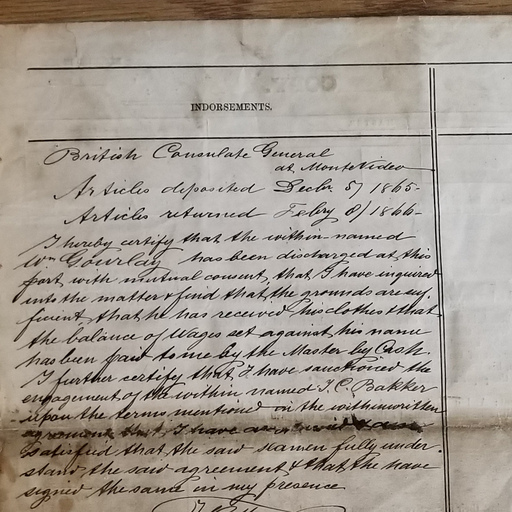 INDORSEMENTS.
British Consulate General
at MonteVideo
Articles deposited Decbr. 5/ 1865-
Articles returned Febry 8/ 1866-
I hereby certify that the within-named
Wm Gourlay has been discharged at this
port with mutual consent, that I have inquired
into the matter & find that the grounds are suf-
ficient, that he has received his clothes & that
the balance of Wages set against his name
has been paid to me by the Master by Cash.
I further certify that I have sanctioned the
engagement of the within named I. C. Bakker
upon the terms mentioned on the within written
agreement that I have am
satisfied that the said Seamen fully under-
stand the said agreement & that the have
signed the same in my presence